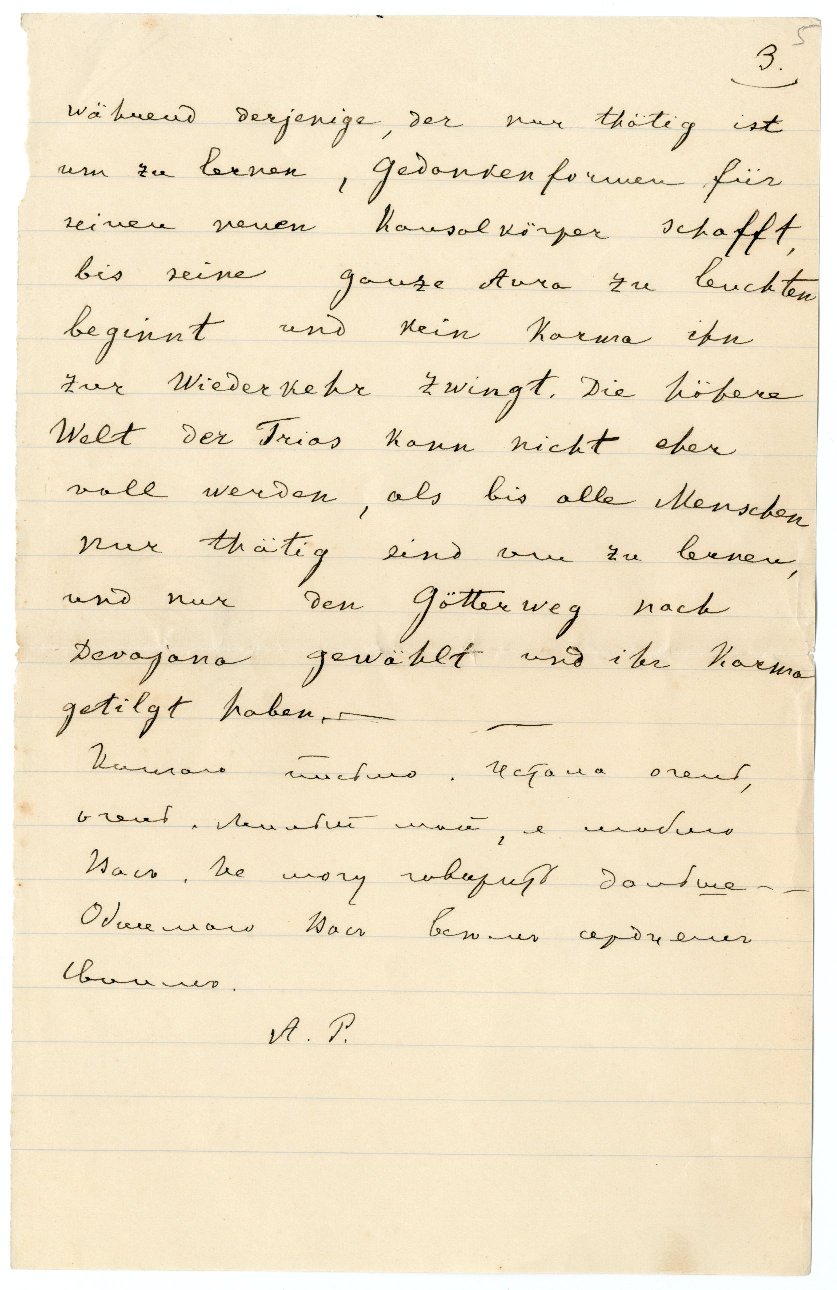 5
3.
während derjenige, der nur thätig ist
um zu lernen, Gedankenformen für
seinen neuen Kausalkörper schafft,
bis seine ganze Aura zu leuchten
beginnt und kein Karma ihn
zur Wiederkehr zwingt. Die höhere
Welt der Trias kann nicht eher
voll werden, als bis alle Menschen
nur thätig sind um zu lernen,
und nur den Götterweg nach
Devajana gewählt und ihr Karma
getilgt haben. —
Кончаю письмо. Устала очень,
очень. Милый мой, я люблю
Васъ. Не могу говорить дольше - -
Обнимаю Васъ всѣмъ сердцемъ
своимъ.
А. Р.